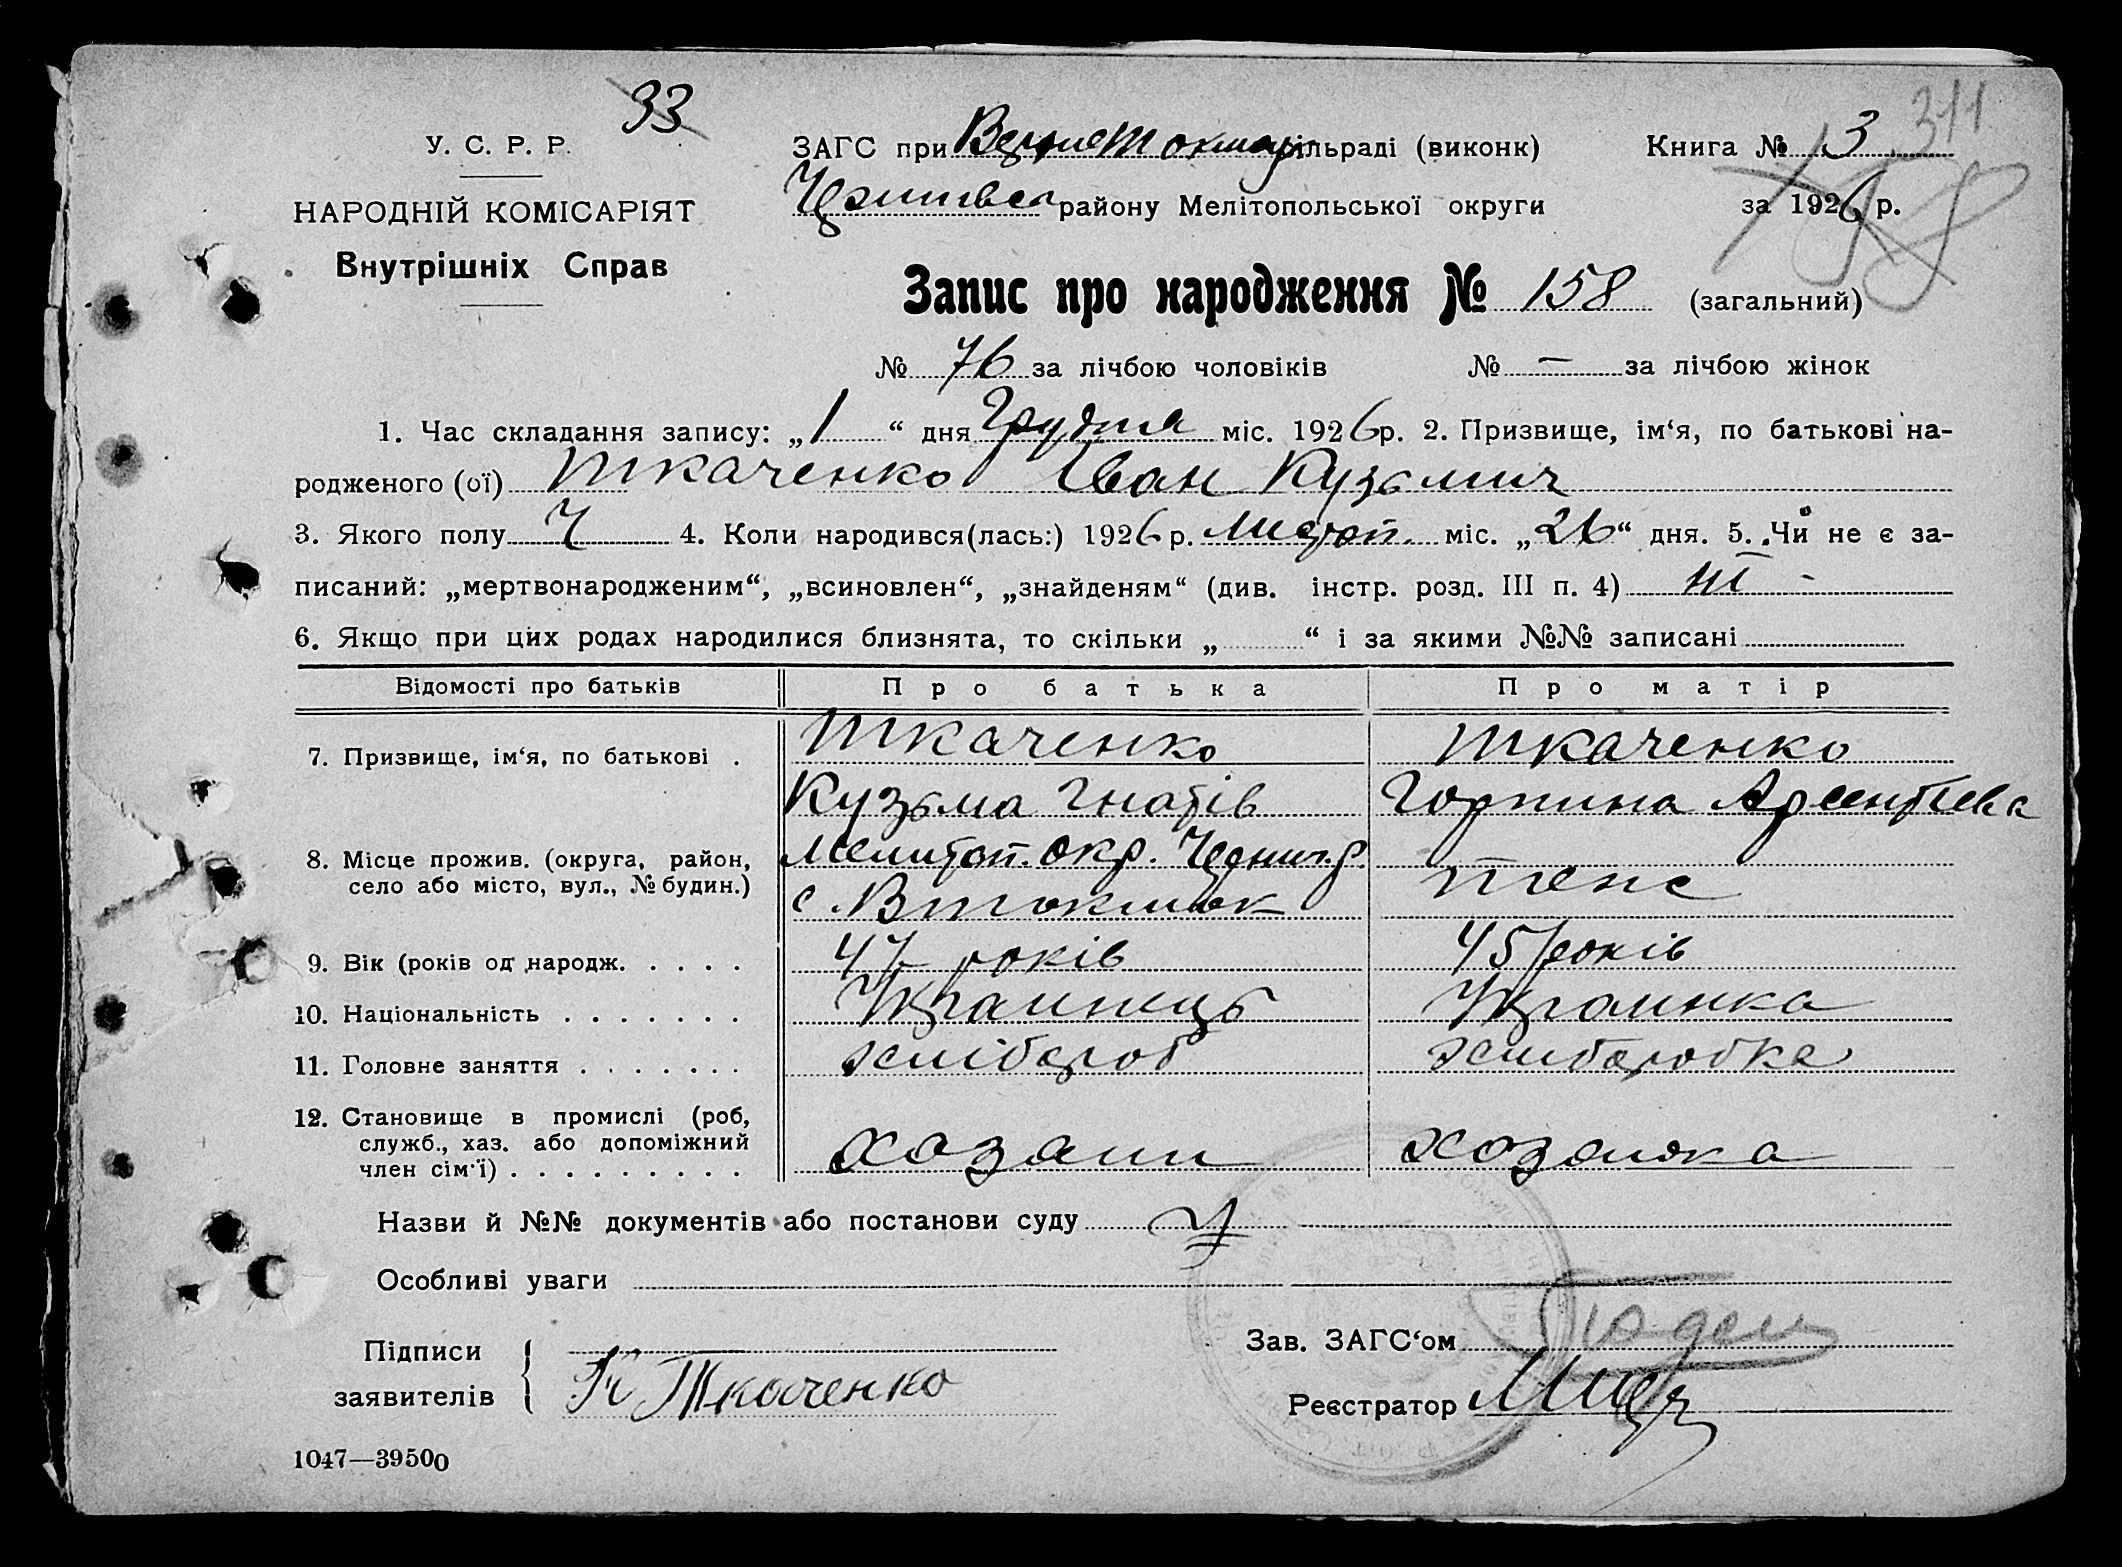 33
311
У. С. Р. Р.
НАРОДНІЙ КОМІСАРІЯТ
Внутрішніх Справ
ЗАГС при Верхнетокмац сільраді (виконк)
району Мелітопольської округи
Книга № 3
за 1926 р.
Запис про народження № 158 (загальний)
№ 76 за лічбою чоловіків № — за лічбою жінок
1. Час складання запису: „1“ дня Грудня міс. 1926 р. 2. Призвище, ім‘я, по батькові на-
родженого (ої) Ткаченко Іван Кузьмич
3. Якого полу Ч 4. Коли народився(лась:) 1926 р. Листоп. міс. „26“ дня. 5. Чи не є за-
писаний: „мертвонародженим“, „всиновлен“, „знайденям“ (див. інстр. розд. III п. 4) ні -
6. Якщо при цих родах народилися близнята, то скільки „ “ і за якими №№ записані
Відомості про батьків Про батька Про матір
7. Призвище, ім‘я, по батькові . Ткаченко Ткаченко
Кузьма Гнатів Горпина Арсентієва
8. Місце прожив. (округа, район, Мелитоп. окр. Черниг. р.
село або місто, вул., № будин.) с. В Токмак теж
9. Вік (років од народж. . . . . 47 років 45 років
10. Національність . . . . . . . Украинець Украинка
11. Головне заняття . . . . . . . хлібороб хлиборобка
12. Становище в промислі (роб,
служб., хаз. або допоміжний хозяин хозяйка
член сім‘ї) . . . . . . . . .
Назви й №№ документів або постанови суду
Особливі уваги
Підписи
заявителів К Ткаченко
Зав. ЗАГС‘ом
Реєстратор
1047—39500